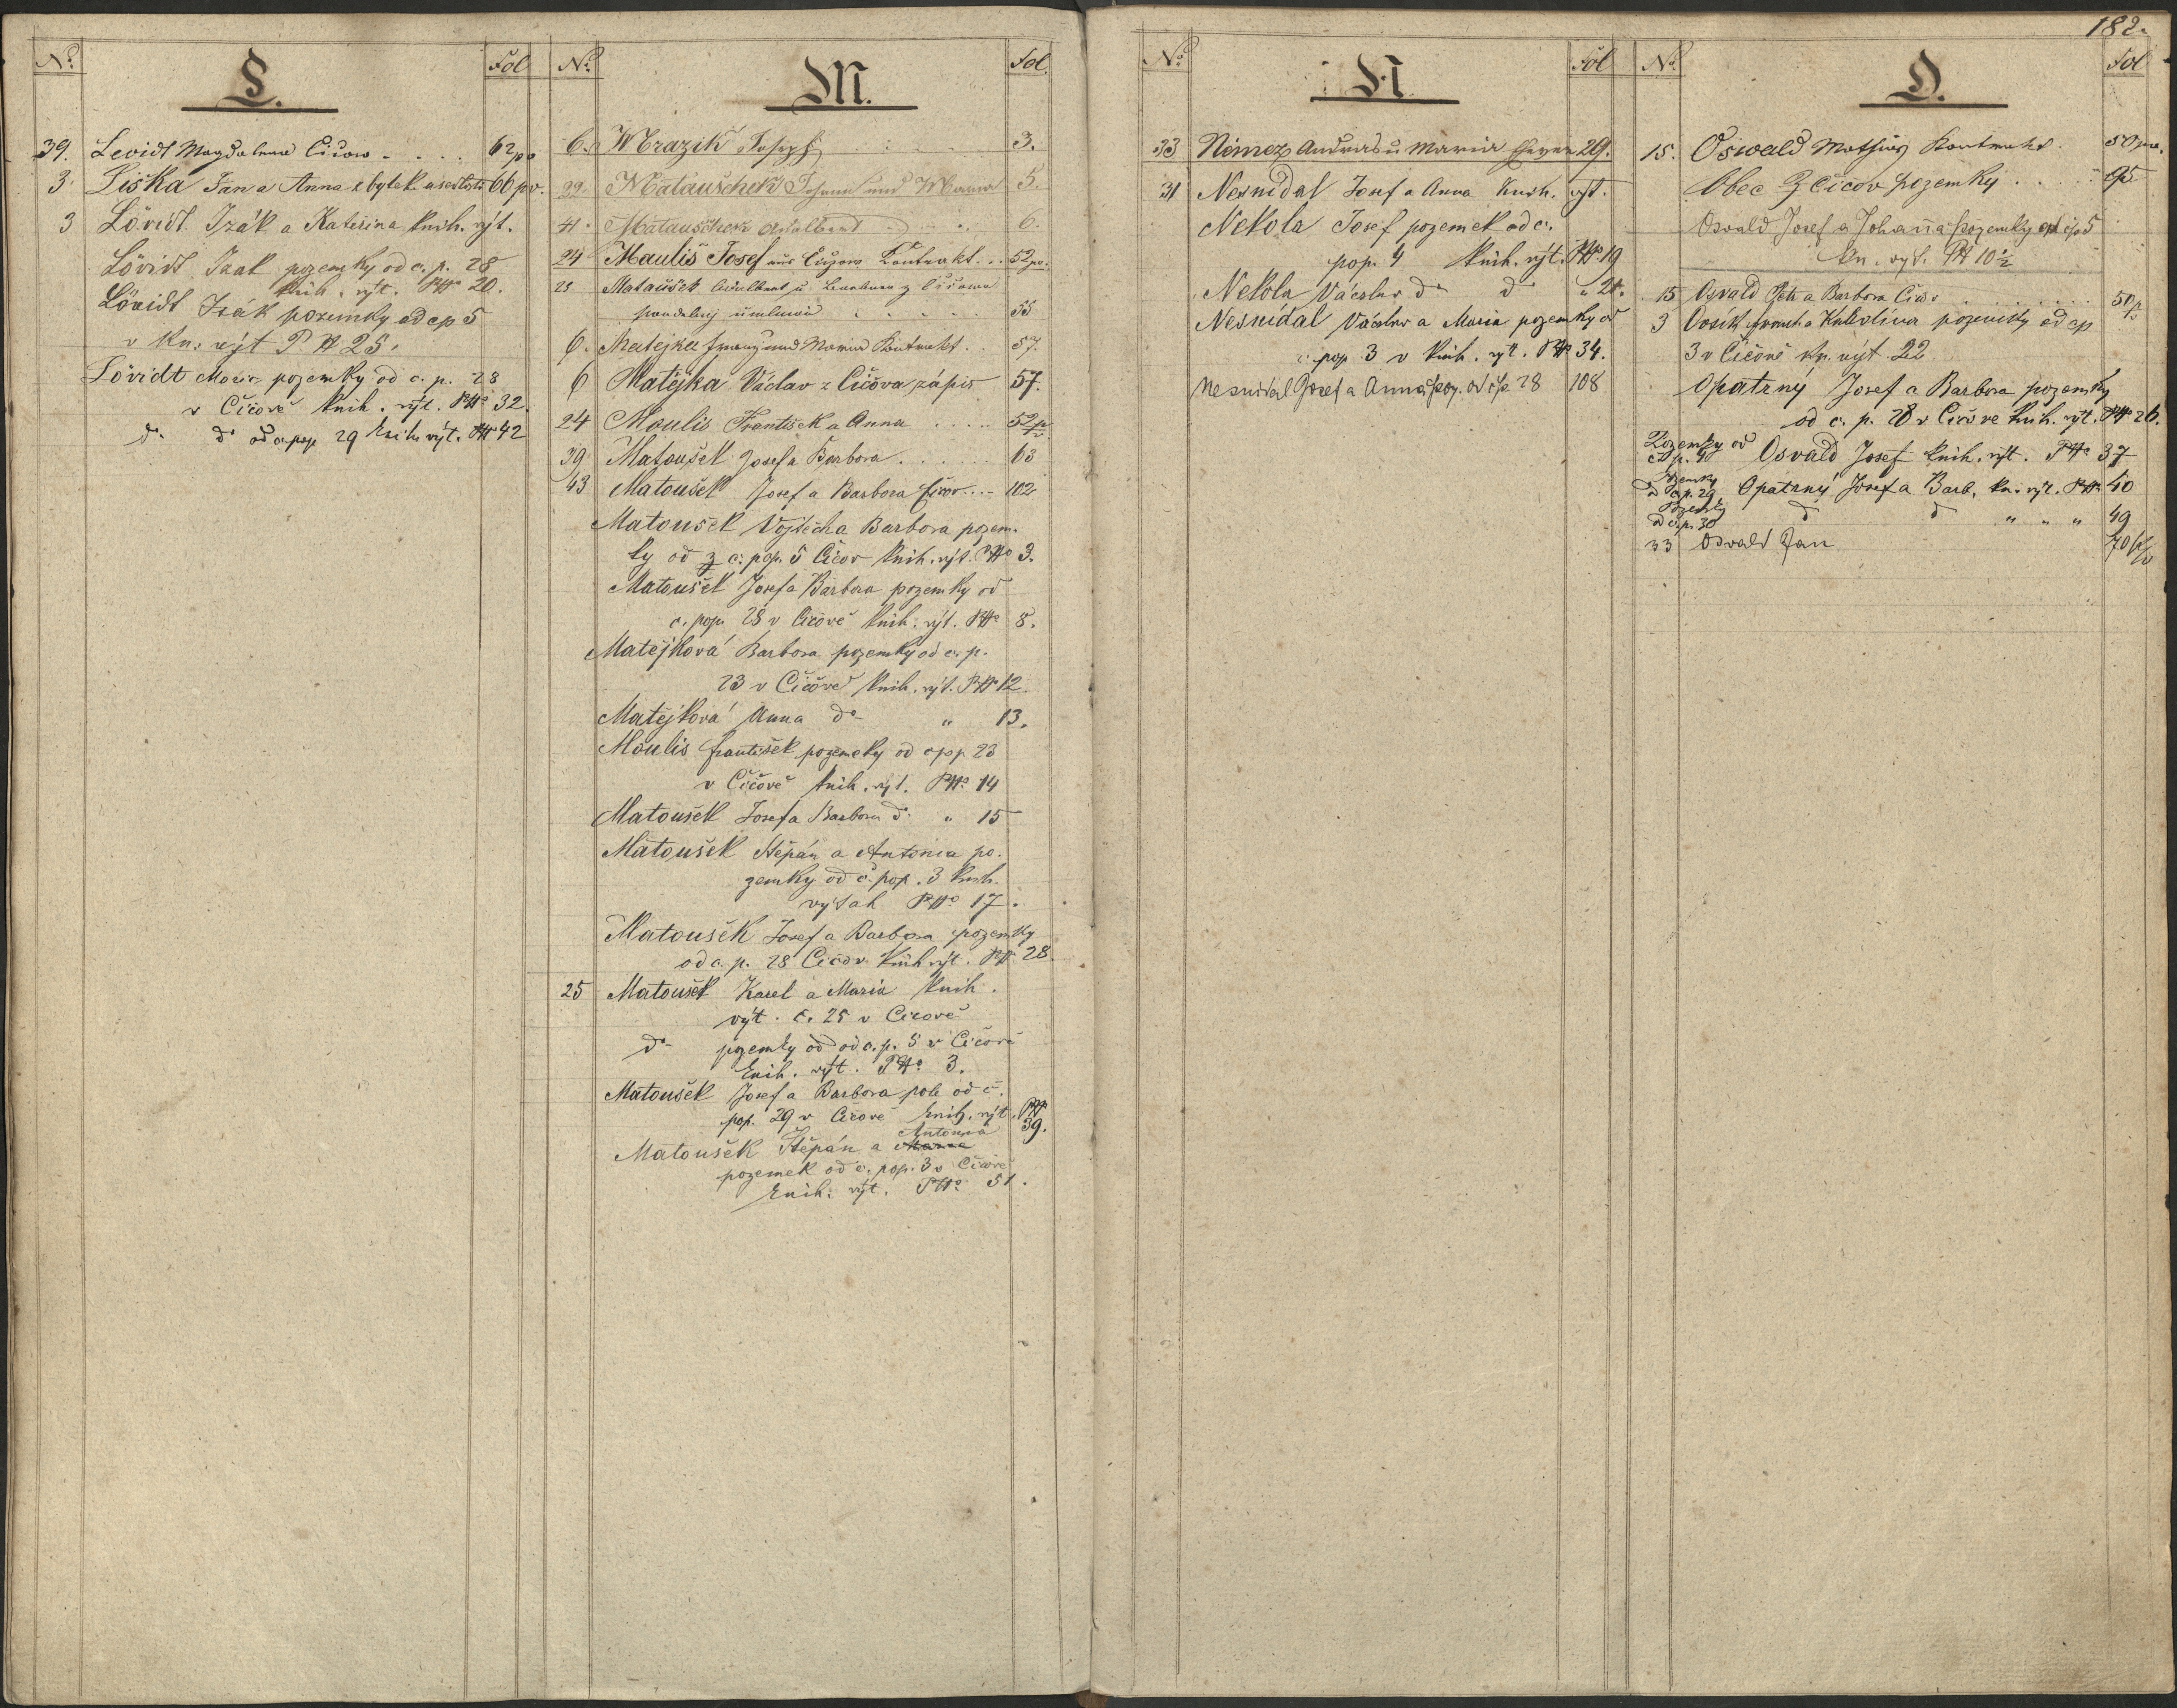 182.
No. L. Fol
39. Levidt Magdalena Cicow . . . . 62 po
3. Liška Jan a Anna zbytek usedlosti 66 pv.
3 Lövidt Izák a Kateřina knih. výt.
Lövidt Izak pozemky od c. p. 28
knih. výt. PNo 20.
Lövidt Izák pozemky od cp 5
v kn. výt P N 25.
Lövidt Moric pozemky od c. p. 28
v Čičově knih. výt. PNo 32.
do do od c. pop. 29 knih. výt. PN 42
No. M. Fol.
6. Mrazik Joseph 3.
22. Matauschek Johann und Maria 5.
41. Matauschek Adalbert 6.
24 Maulis Josef aus Cižow Kontrakt . . 52 po.
25 Matauschek Adalbert u Barbara z Čičowa
55
6. Matejka Franz und Maria Kontrakt . . 57.
6 Matějka Václav z Čičova zápis 57.
24 Maulis František a Anna . . . . 52 p/v
39 Matoušek Josef a Barbora . . . . 63
43 Matoušek Josef a Barbora Čičov . . . 102
Matousek Vojtěch a Barbora pozem-
ky od z c. pop. 5 Čičov knih. výt. PNo 3.
Matoušek Josef a Barbora pozemky od
c. pop. 28 v Cičově knih. výt. PNo 8.
Matějková Barbora pozemky od c. p.
23 v Čičově knih. výt. PNo 12.
Matějková Anna do " 13.
Moulis František pozemky od cpop 23
v Čičově knih. výt. PNo. 14
Matoušek Josef a Barbora do " 15
Matoušek Štěpán a Antonia po-
zemky od č. pop. 3 knih.
výtah PNo 17.
Matoušek Josef a Barbora pozemky
od c. p. 28 Cicov. knih výt. PNo 28.
25 Matoušek Karel a Maria knih.
výt. č. 25 v Cicově
do pozemky od od c. p. 5 v Čičově
knih. výt. PNo 3.
Matoušek Josef a Barbora pole od č.
pop. 29 v Čičově knih. výt. PNo 39.
Antonia
Matoušek Štěpán a Marie
pozemek od č. pop. 3 v Čičově
knih. výt. PNo 51.
No. N Fol
33 Nemez Andreas u Maria 29.
31 Nesnidal Josef a Anna knih. výt.
Nekola Josef pozemek od c.
pop. 4 knih. výt. PNo 19
Nekola Václav do do " 21.
Nesnídal Václav a Maria pozemky od
c. pop. 3 v knih. výt. PNo 34.
Nesnidal Josef a Anna poz. od čp 28 108
No. O. Fol
15. Oswald Mathias Kontrakt. 50
Obec z Cicov pozemky . . . . 95
Osvald Josef a Johanna pozemky od čp 5
kn. výt. PN 10 1/2
15 Osvald Petr a Barbora Cicov . . . . . . 50 p/v
3 a Kateřina pozemky od cp
3 v Čičově kn. výt. 22
Opatrný Josef a Barbora pozemky
od c. p. 28 v Čičově knih. výt. PNo 26.
Pozemky od
Osvald Josef knih. výt. PNo 37
Pozemky
od cp. 29 Opatrny Josef a Barb. kn. výt. PNo 40
Pozemky
od č. p. 30 do do " " " 49
33 Osvald Jan 70 p/v